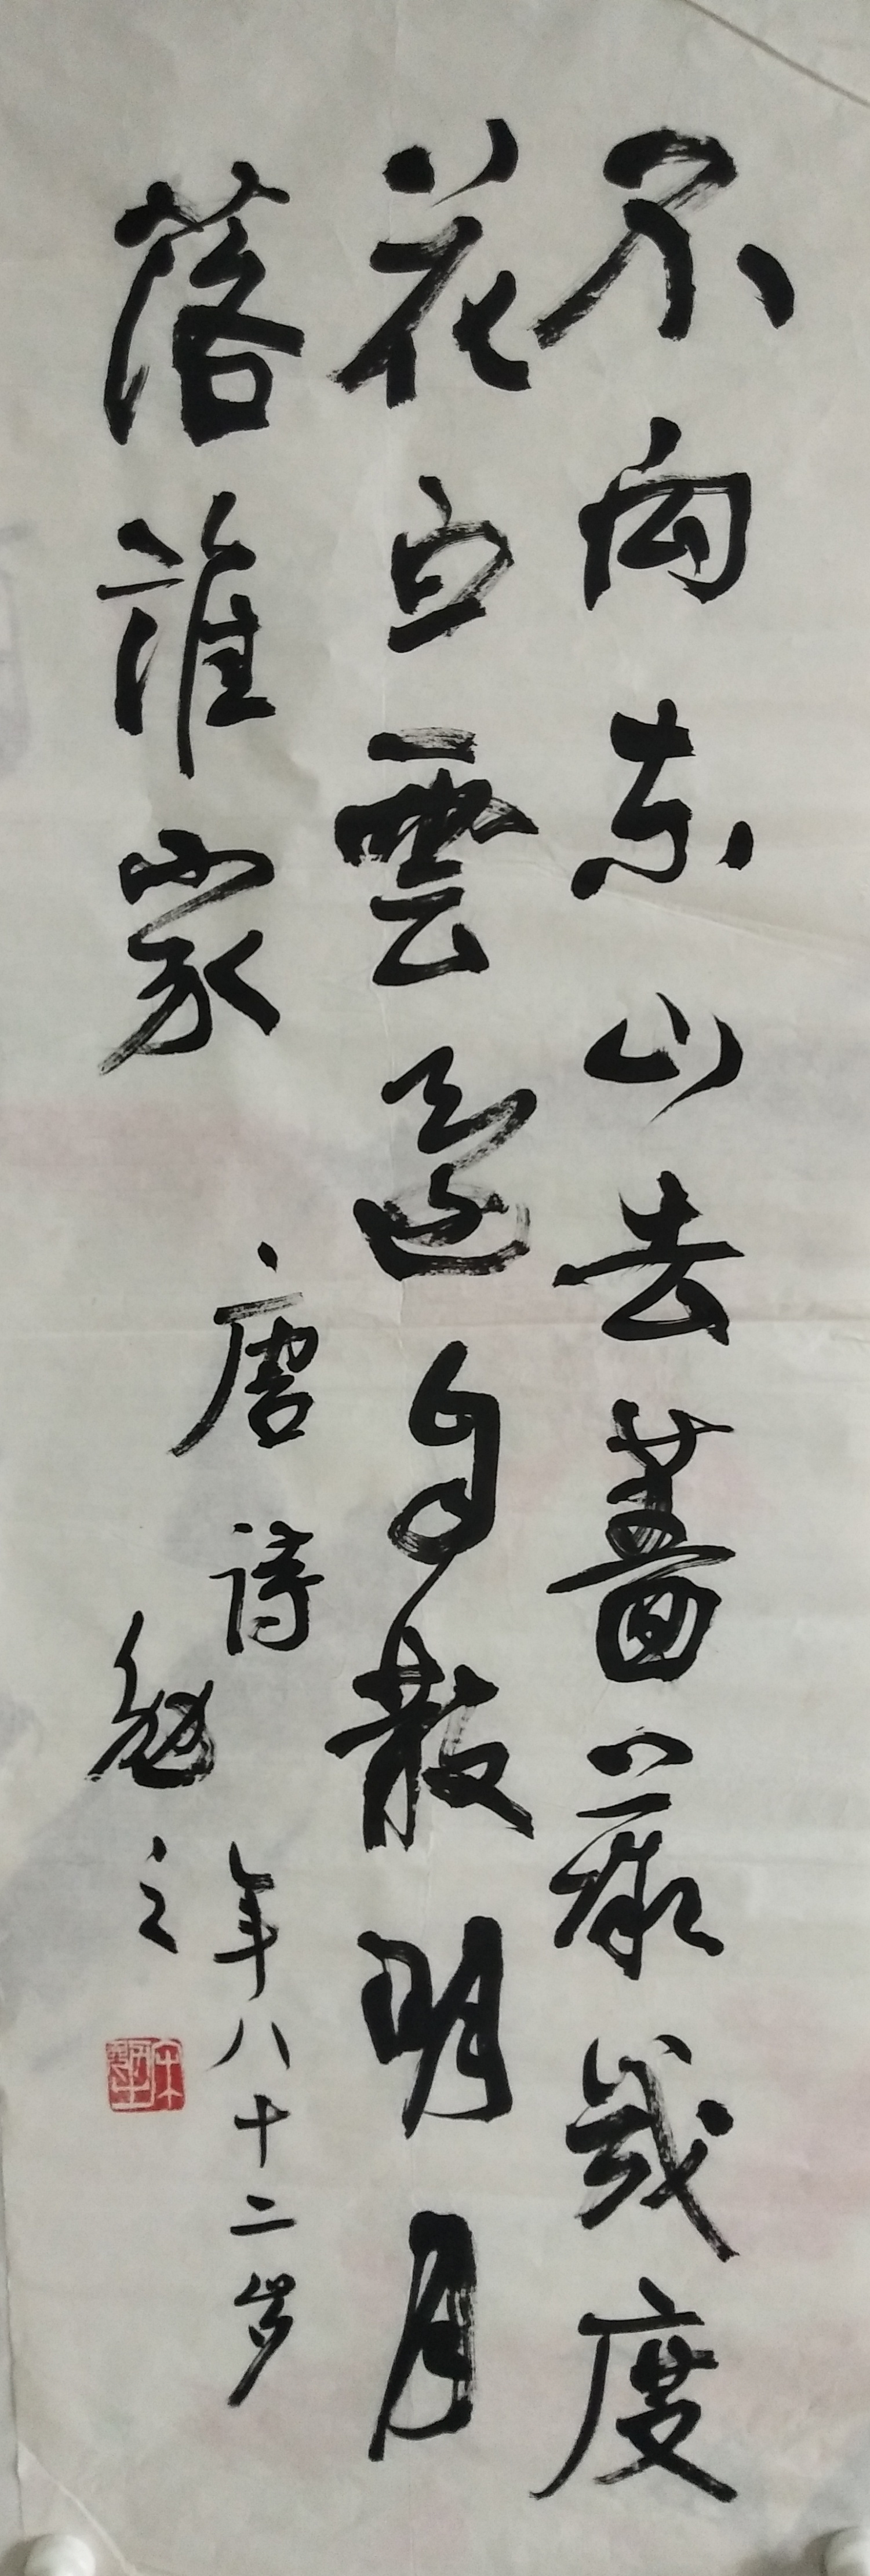 不向东山去蔷薇几度
花白雲還自散明月
落誰家
唐詩
年八十二岁
勉之